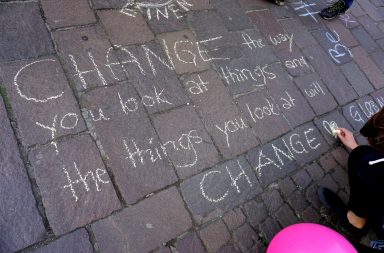 CHANGE the way
you look at things and
the things you look at will
CHANGE